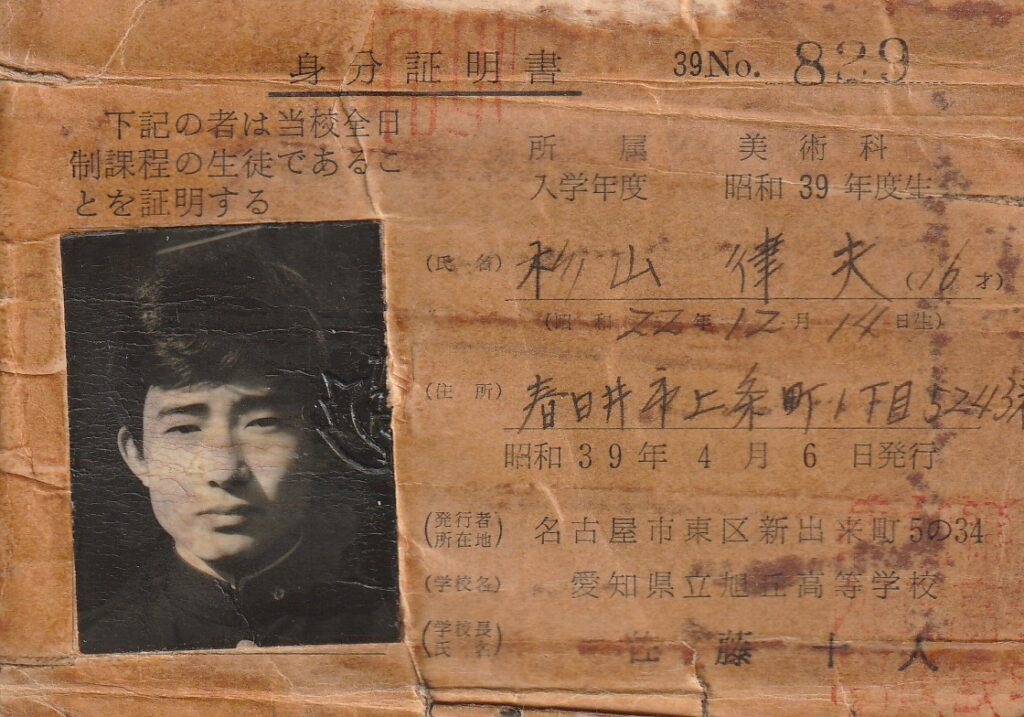 身分証明書
39No. 829
下記の者は当校全日
制課程の生徒であるこ
とを証明する
所属 美術科
入学年度 昭和 39 年度生
(氏名) 杉山 律夫 (16才)
(昭和 22年 12月 14日生)
(住所) 春日井市上条町1丁目5243
昭和39年4月6日発行
(発行者所在地) 名古屋市東区新出来町5の34
(学校名) 愛知県立旭丘高等学校
(学校長氏名) 佐藤十人